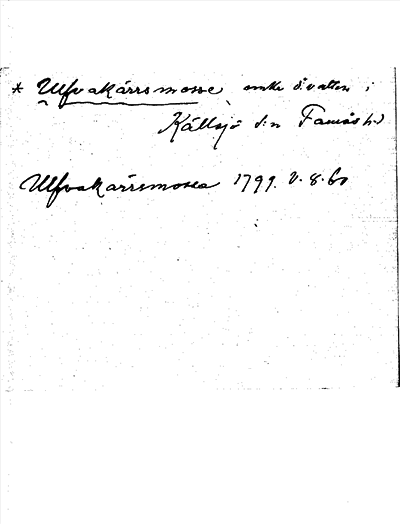 * Ulfvakärrsmosse, i
Källsjö s:n Faurås hd
Ulfvakärrsmossa 1799. V. 8. 60